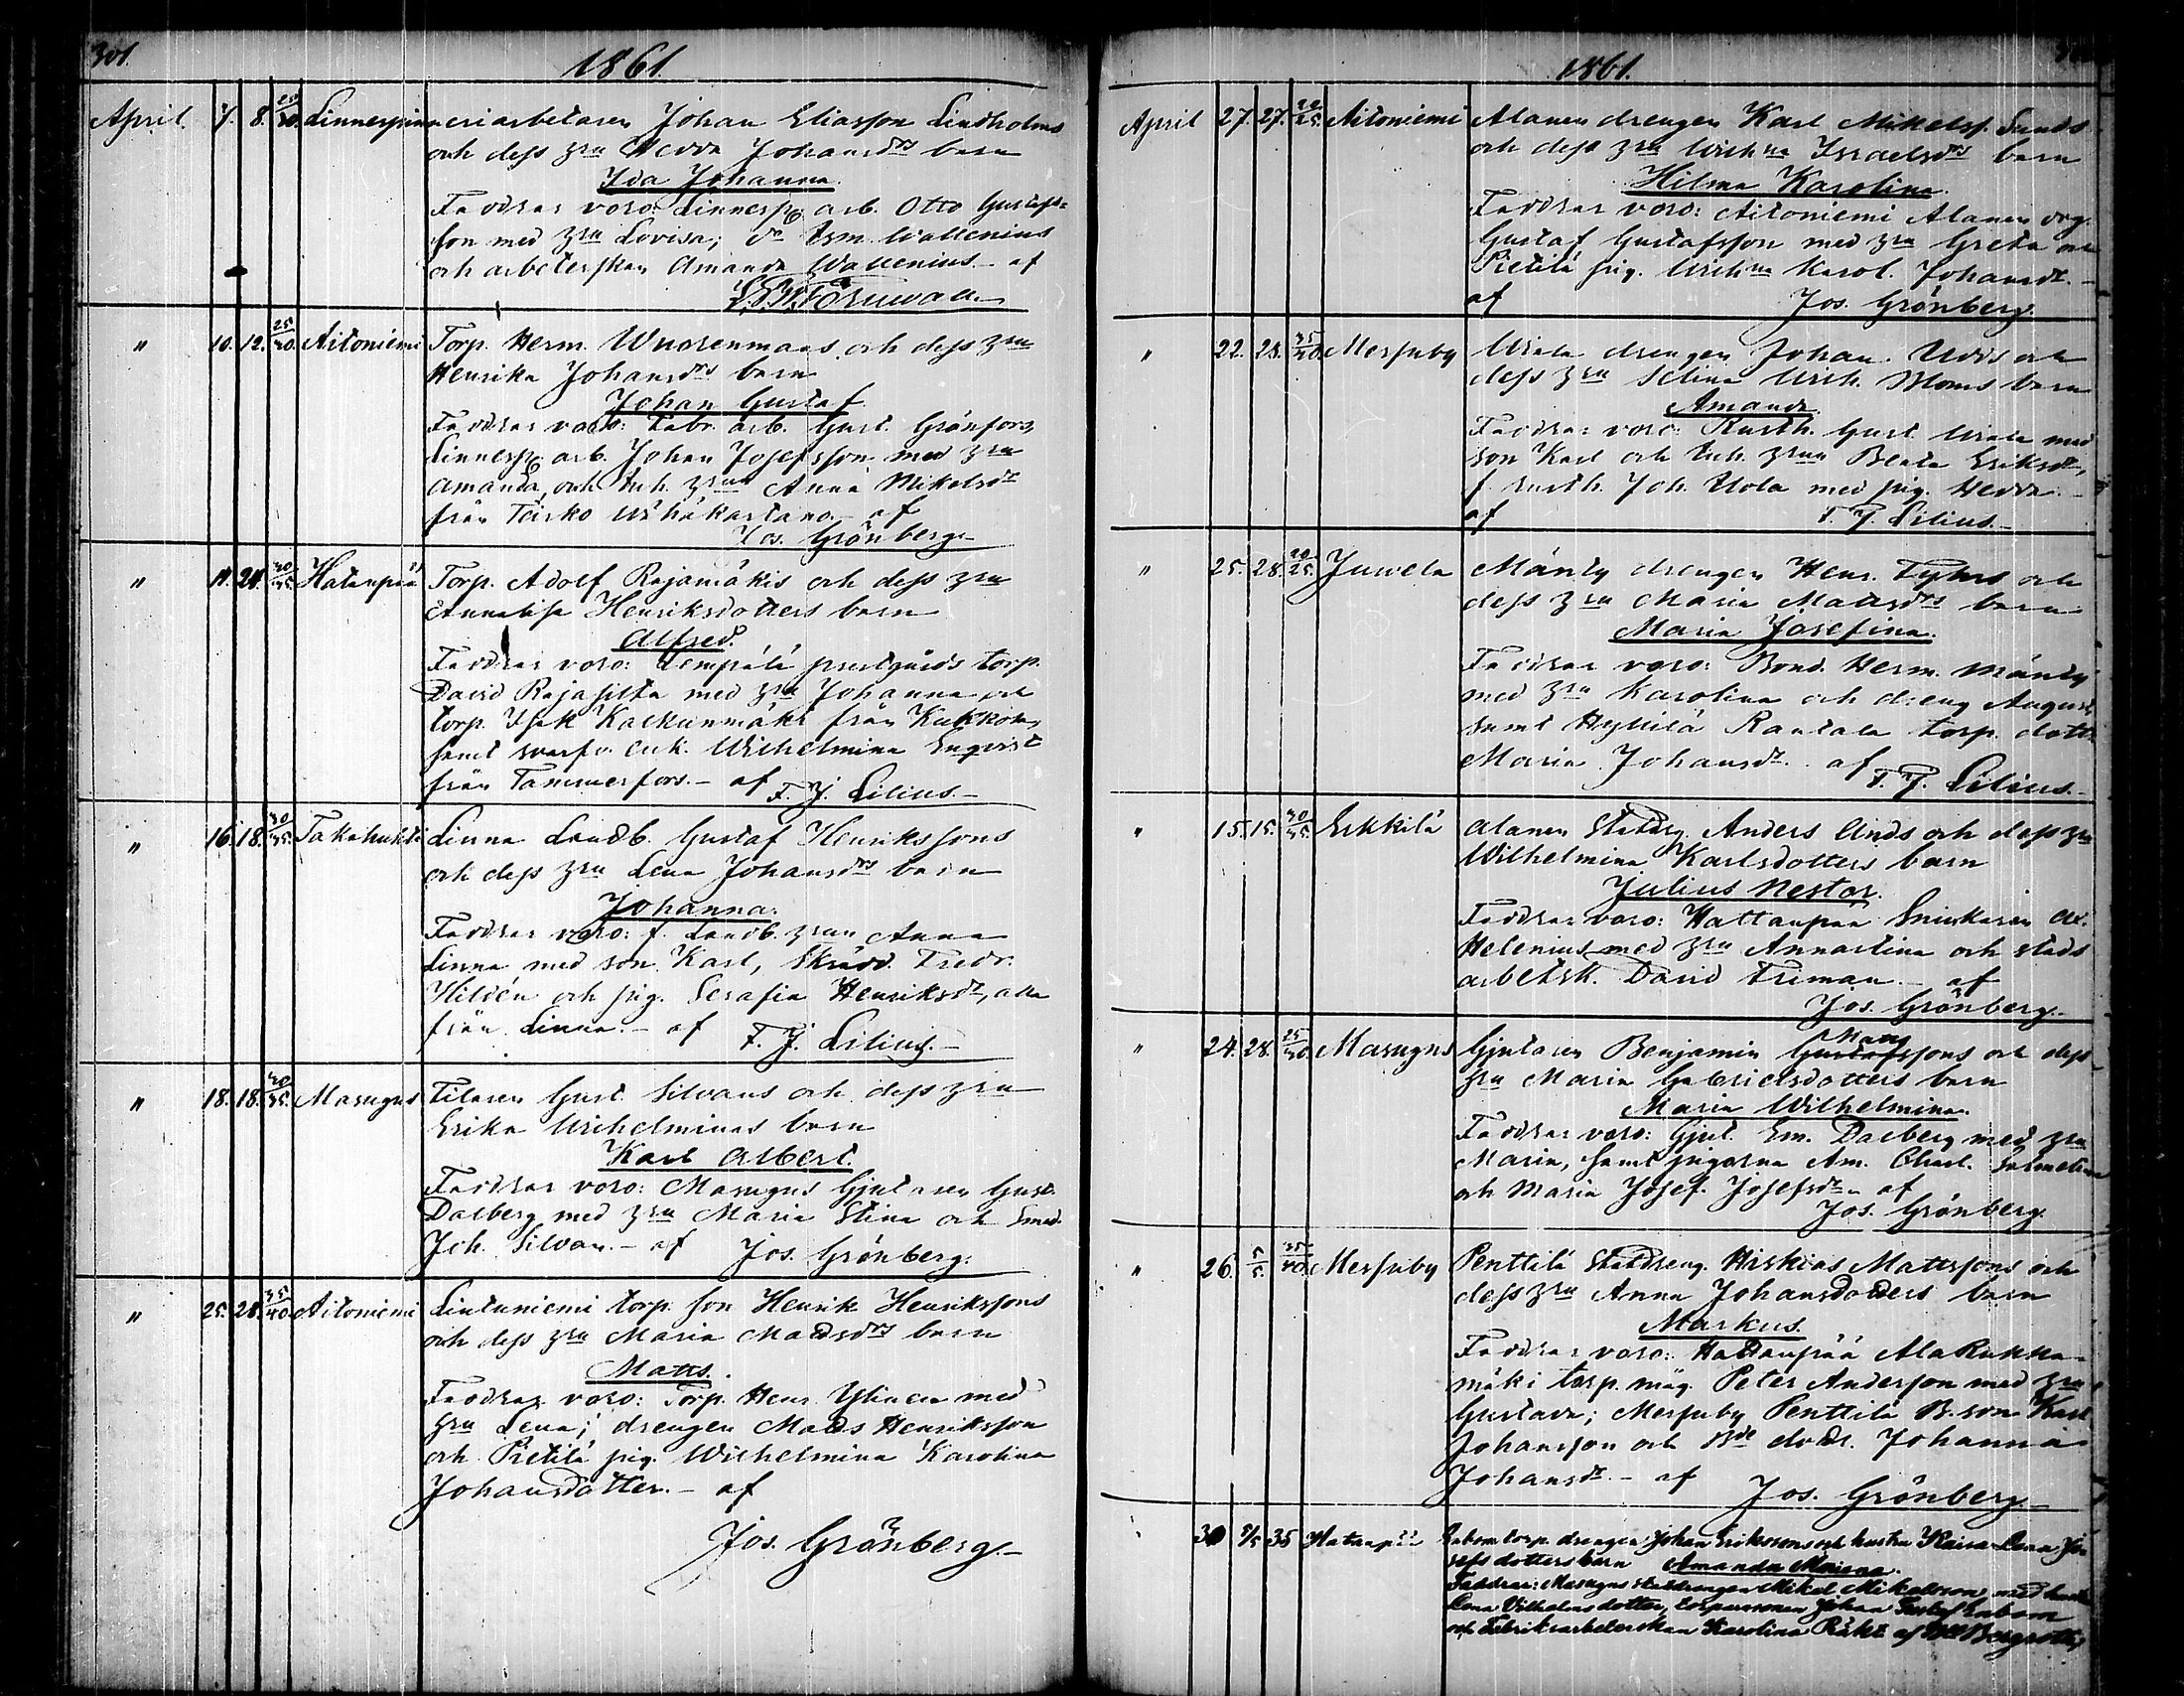 301.
1861.
April. 7. 8. 25/30. Linnespinneriarbetaren Johan Eliasson Lindholms
och dess hru Hedda Johansdrs barn
Ida Johanna.
Faddrar voro: Linnesp. arb. Otto Gustafs=
son med hru Lovisa; do Wallenius
och arbeterskan Amanda Wallenius. - af
" 10. 12. 25/30. Aitoniemi Torp. Herm. Wuorenmaas och dess hru
Henrika Johansdrs barn
Johan Gustaf
Faddrar voro: Fabr. arb. Gust. Grönfors,
Linnesp. arb. Johan Josefsson med hru
Amanda, och Enk. hrun Anna Mikelsdr
från Teisko Wähäkartano. - af
Jos. Grönberg. -
" 11. 24. Hatanpää Torp. Adolf Rajamäkis och dess hru
Annalisa Henriksdotters barn
Alfred.
Faddrar voro: Lempälä prestgårds torp.
David Rajasilta med hru Johanna och
torp. Isak Kaekunmäki från
samt enk. Wilhelmina Enqvist
från Tammerfors. - af F. J. Lilius. -
" 16. 18. 30/35. Takahuhti Linna Landb. Gustaf Henrikssons
och dess hru Lena Johansdrs barn
Johanna.
Faddrar voro: f. Landb. hrun Anna
Linna med son Karl, Skrädd. Fredr.
Hildén och pig. Serafia Henriksdr, alla
från Linna. - af F. J. Lilius. -
" 18. 18. Masugns Filaren Gust. Silvans och dess hru
Erika Wilhelminas barn
Karl Albert.
Faddrar voro: Masugns Gjutaren Gust.
Dalberg med hru Maria Stina och Smed.
Joh. Silvan. - af Jos. Grönberg.
" 25. 28. 35/40. Aitoniemi Lintuniemi torp. son Henrik Henrikssons
och dess hru Maria Mattsdrs barn
Matts.
Faddrar voro: Torp. Henr. Ylinen med
hru Lena; drengen Matts Henriksson
och Pietilä pig. Wilhelmina Karolina
Johansdotter. - af
Jos. Grönberg. -
1861.
April 27. 27. 20/25. Aitoniemi Alanen drengen Karl Mikelss. Sunds
och dess hru Wilhna Israelsdrs barn
Hilma Karolina.
Faddrar voro: Aitoniemi Alanen drg.
Gustaf Gustafsson med hru Greta och
Pietilä pig. Wilhna Karol. Johansdr. -
af Jos. Grönberg.
" 22. 28. 35/40. Messuby Uiala drengen Johan Udds och
dess hru Selina Wilh. Moms barn
Amanda.
Faddrar voro: Rusth. Gust. Uiala med
son Karl och Enk. hrun Beata Eriksdr,
f. rusth. Joh. Uola med pig. Hedda. -
af F. J. Lilius. -
" 25. 28. 20/25. Juvela Mänty drengen Henr. och
dess hru Maria Mattsdrs barn
Maria Josefina.
Faddrar voro: Bond. Herm. Mänty
med hru Karolina och dreng August,
samt Hyllilä Rantala torp. dott.
Maria Johansdr. - af F. J. Lilius. -
" 15. 15. 30/35. Erkkilä Alanen Statdrg. Anders Ands och dess hru
Wilhelmina Karlsdotters barn
Julius Nestor.
Faddrar voro: Hattanpää Snickaren Al.
Helenius med hru Annastina och stads
arbetsk. David Friman. - af
Jos. Grönberg. -
" 24. 28. 25/30. Masugns Gjutaren Benjamin Matssons och dess
hru Maria Gabrielsdotters barn
Maria Wilhelmina.
Faddrar voro: Gjut. Em. Dalberg med hru
Maria, samt pigorna Am. Charl.
och Maria Josef. Josefsdr. - af
Jos. Grönberg.
" 26. 5/5. 35/40. Messuby Penttilä Statdreng. Hiskias Mattssons och
dess hru Anna Johansdotters barn
Markus.
Faddrar voro: Hattanpää AlaRukka-
mäki torp. måg. Peter Andersson med hru
Gustava; Messuby Penttilä B. son Karl
Johansson och Bde dottr. Johanna
Johansdr. - af Jos. Grönberg. -
30 5/5 35 Hatanpää Enbom torp. drengen Johan Erikssons och hustru Kaisa Lena Jo
sefsdotters barn Amanda Maria.
Faddrar: Masugns statdrengen Mikel Mikelsson med hustru
Lena Vilhelmsdotter, torparsonen Johan Gustaf Enbom
och Fabriksarbeterskan Karolina Räikä af Bergroth